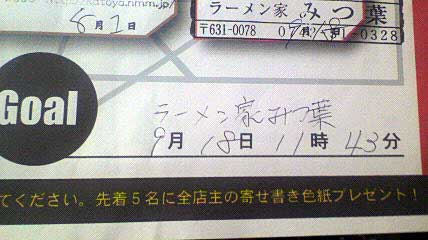 katoya.nmm.jp/
8月1日
ラーメン家 みつ葉
〒631-0078
-0328
Goal
ラーメン家みつ葉
9月18日11時43分
てください。先着5名に全店主の寄せ書き色紙プレゼント!